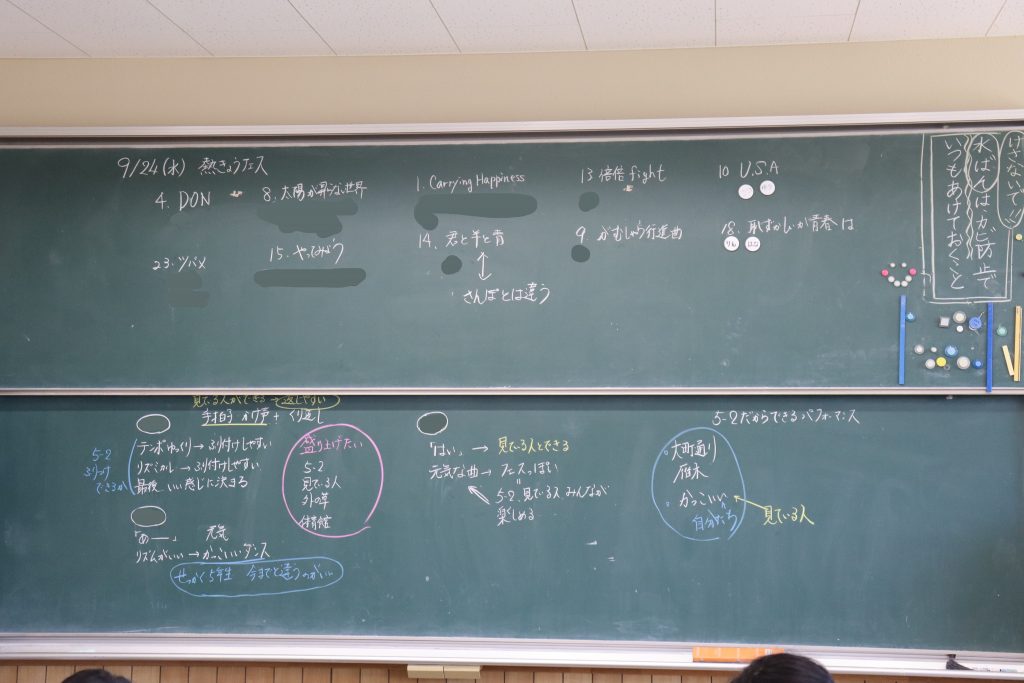 9/24(水) 熱きょうフェス
4. DON
8. 太陽が昇らない世界
1. Carrying Happiness
13 倍倍fight
10 U.S.A
23. ツバメ
15. やってみよう
14. 君と羊と青
さんぽとは違う
9 がむしゃら行進曲
18. 恥ずかしいか青春は
りん
はな
けさないで!!
水ばんはカビ防止で
いつもあけておくこと
見てる人ができる→返しやすい
手拍子 かけ声 + くり返し
テンポゆっくり→ふり付けしやすい
リズミカル→ふり付けしやすい
最後 いい感じに決まる
5-2
ふりつけ
できるか
盛り上げたい
5-2
見ている人
外の草
体育館
「あー」 元気
リズムがいい→かっこいいダンス
せっかく5年生 今までと違うのがいい
「はい」→見ている人とできる
元気な曲→フェスっぽい
5-2、見ている人 みんなが
楽しめる
5-2だからできるパフォーマンス
大町通り
雁木
かっこいい
自分たち
見ている人